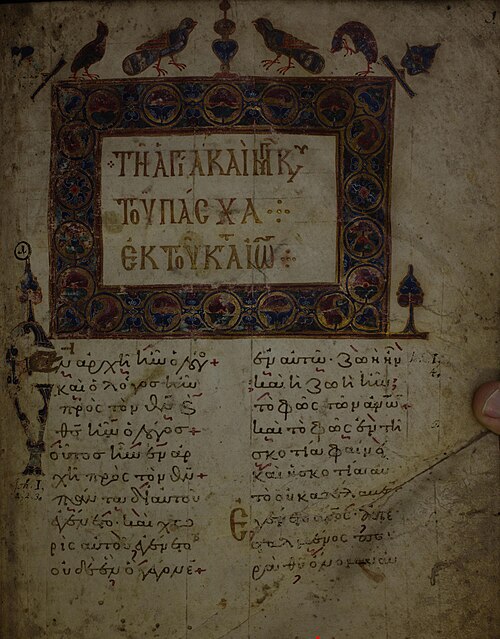 ΤΗ ἉΓΊΑ ΚΑῚ Μ Κυ
ΤΟΥ ΠΆΣΧΑ
ἘΚ ΤΟΥ Κ ΙΩ
Ἐν ἀρχῆ ἦν ὁ λόγος
καὶ ὁ λόγος ἦν
πρὸς τὸν θν καὶ
θς ἦν ὁ λόγος
οὗτος ἦν ἐν ἀρ
χῆ πρὸς τὸν θν
πάντα δι αὐτοῦ
ἐγένετο· καὶ χω
ρὶς αὐτοῦ ἐγένετο
οὐδὲ ἓν ὃ γέγονε
ἐν αὐτῶ· ζωὴ ἦν
καὶ ἡ ζωὴ ἦν
τὸ φῶς τῶν ἀνων
καὶ τὸ φῶς ἐν τῆ
σκοτία φαίνει
καὶ ἡ σκοτία αυ
τὸ οὐ κατέλαβεν
Ἐγένετο ἄνος ἀπε
σταλμένος